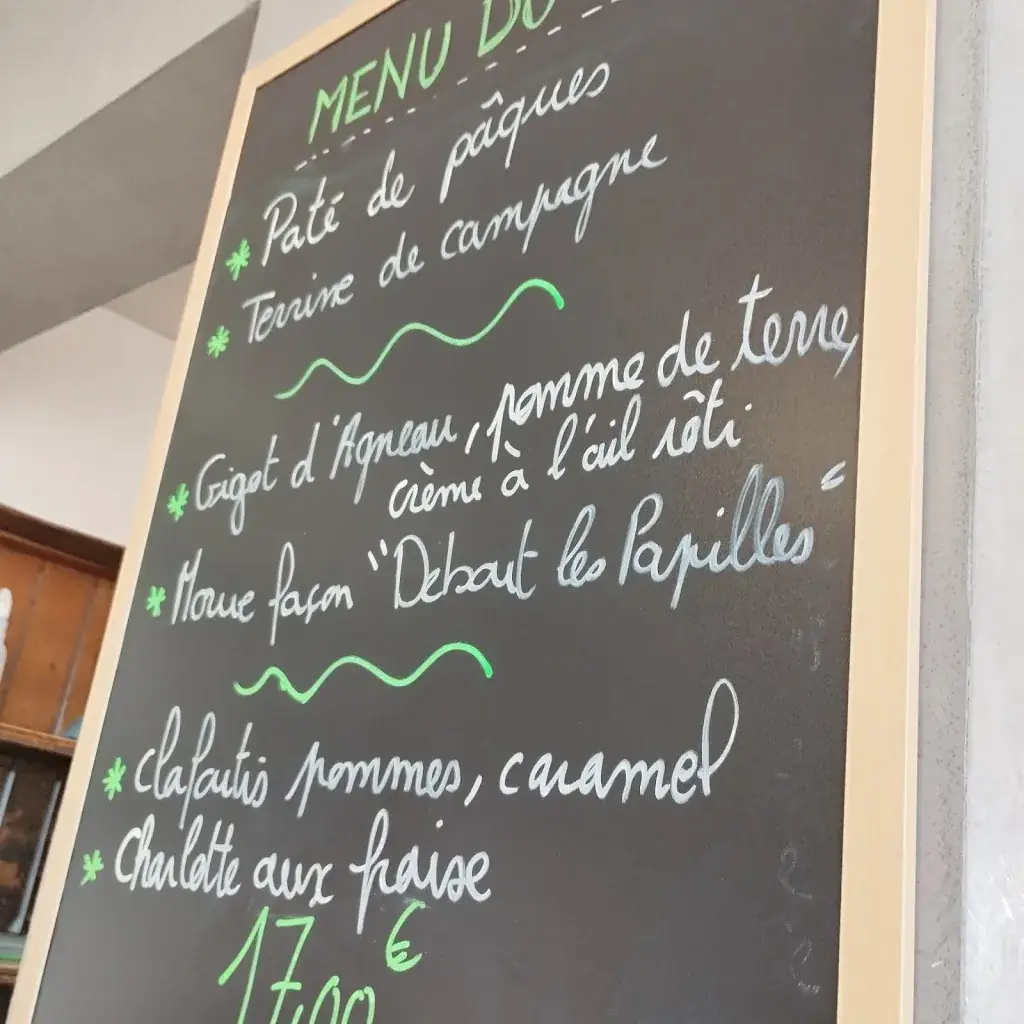 MENU DU
* Paté de pâques
* Terrine de campagne
* Gigot d'Agneau, pomme de terre,
crème à l'ail rôti
* Morue façon "Debout les Papilles"
* Clafoutis pommes, caramel
* Charlotte aux fraise
17,00 €